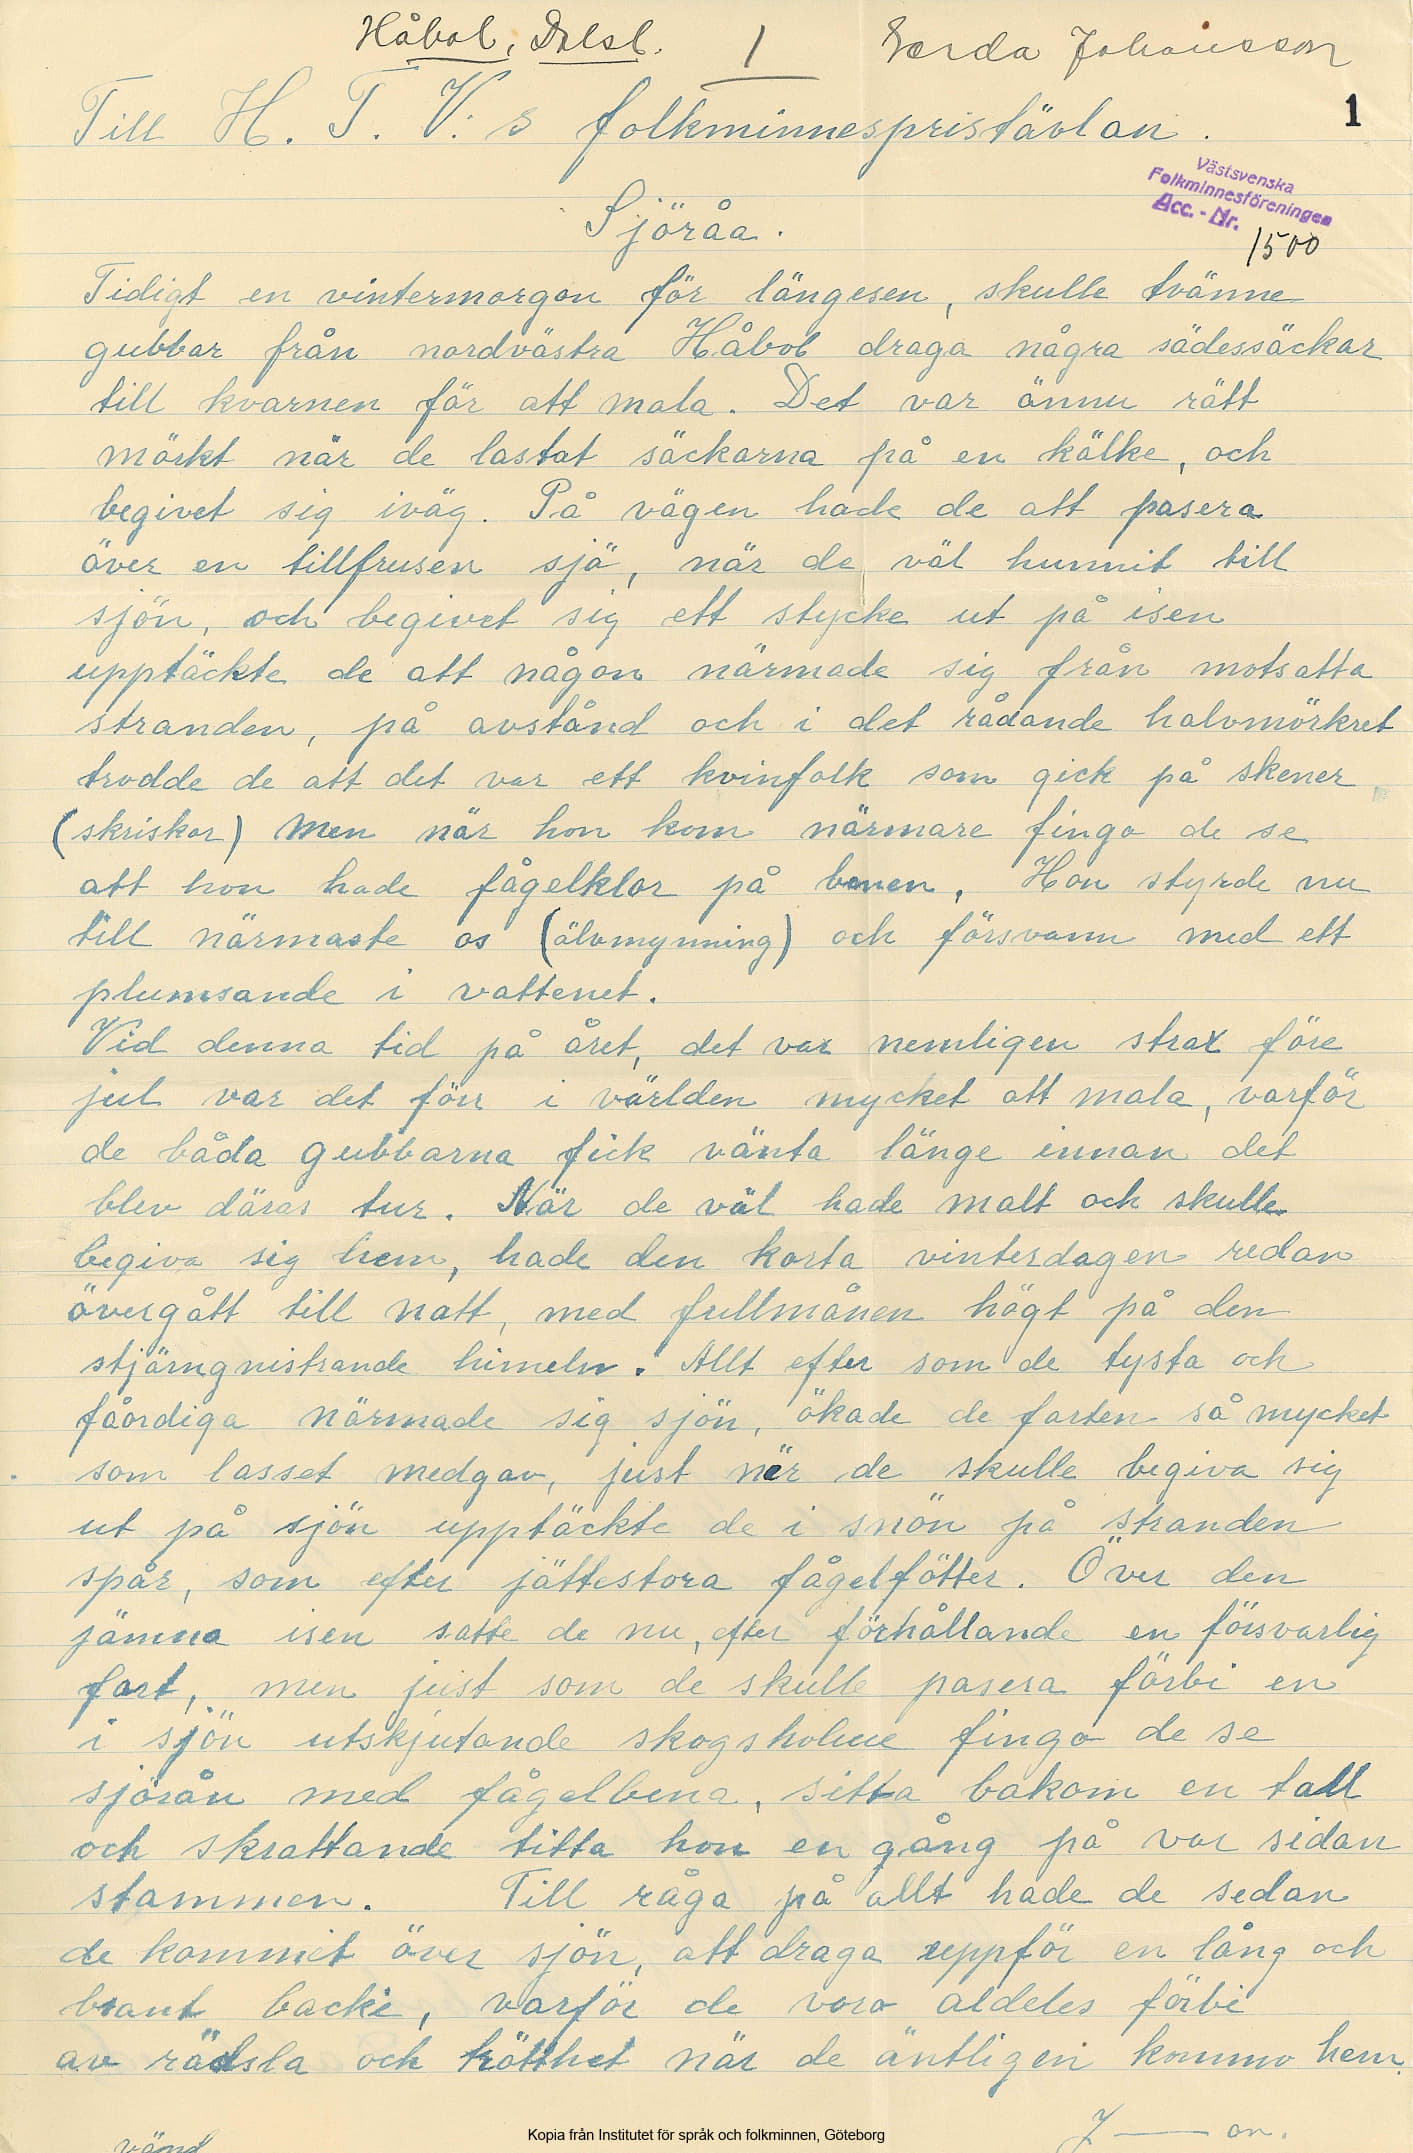 Håbol, Dalsl. 1 Gerda Johansson
1
Till H. T. V:s folkminnespristävlan.
Västsvenska
Folkminnesföreningen
Acc.-Nr.
1500
Sjöråa.
Tidigt en vintermorgon för längesen, skulle tvänne
gubbar från nordvästra Håbol draga några sädessäckar
till kvarnen för att mala. Det var ännu rätt
mörkt när de lastat säckarna på en kälke, och
begivet sig iväg. På vägen hade de att pasera
över en tillfrusen sjö, när de väl hunnit till
sjön, och begivet sig ett stycke ut på isen
upptäckte de att någon närmade sig från motsatta
stranden, på avstånd och i det rådande halvmörkret
trodde de att det var ett kvinfolk som gick på skener
(skriskor) men när hon kom närmare fingo de se
att hon hade fågelklor på benen. Hon styrde nu
till närmaste os (älvmynning) och försvann med ett
plumsande i vattenet.
Vid denna tid på året, det var nemligen strax före
jul var det förr i världen mycket att mala, varför
de båda gubbarna fick vänta länge innan det
blev däras tur. När de väl hade malt och skulle
begiva sig hem, hade den korta vinterdagen redan
övergått till natt, med fullmånen högt på den
stjärngnistrande himeln. Allt efter som de tysta och
fåordiga närmade sig sjön, ökade de farten så mycket
som lasset medgav, just när de skulle begiva sig
ut på sjön upptäckte de i snön på stranden
spår, som efter jättestora fågelfötter. Över den
jämna isen satte de nu, efter förhållande en försvarlig
fart, men just som de skulle pasera förbi en
i sjön utskjutande skogsholme fingo de se
sjörån med fågelbena, sitta bakom en tall
och skrattande titta hon en gång på var sidan
stammen. Till råga på allt hade de sedan
de kommit över sjön, att draga uppför en lång och
brant backe, varför de voro aldeles förbi
av rädsla och trötthet när de äntligen kommo hem.
J—on.
vänd
Kopia från Institutet för språk och folkminnen, Göteborg